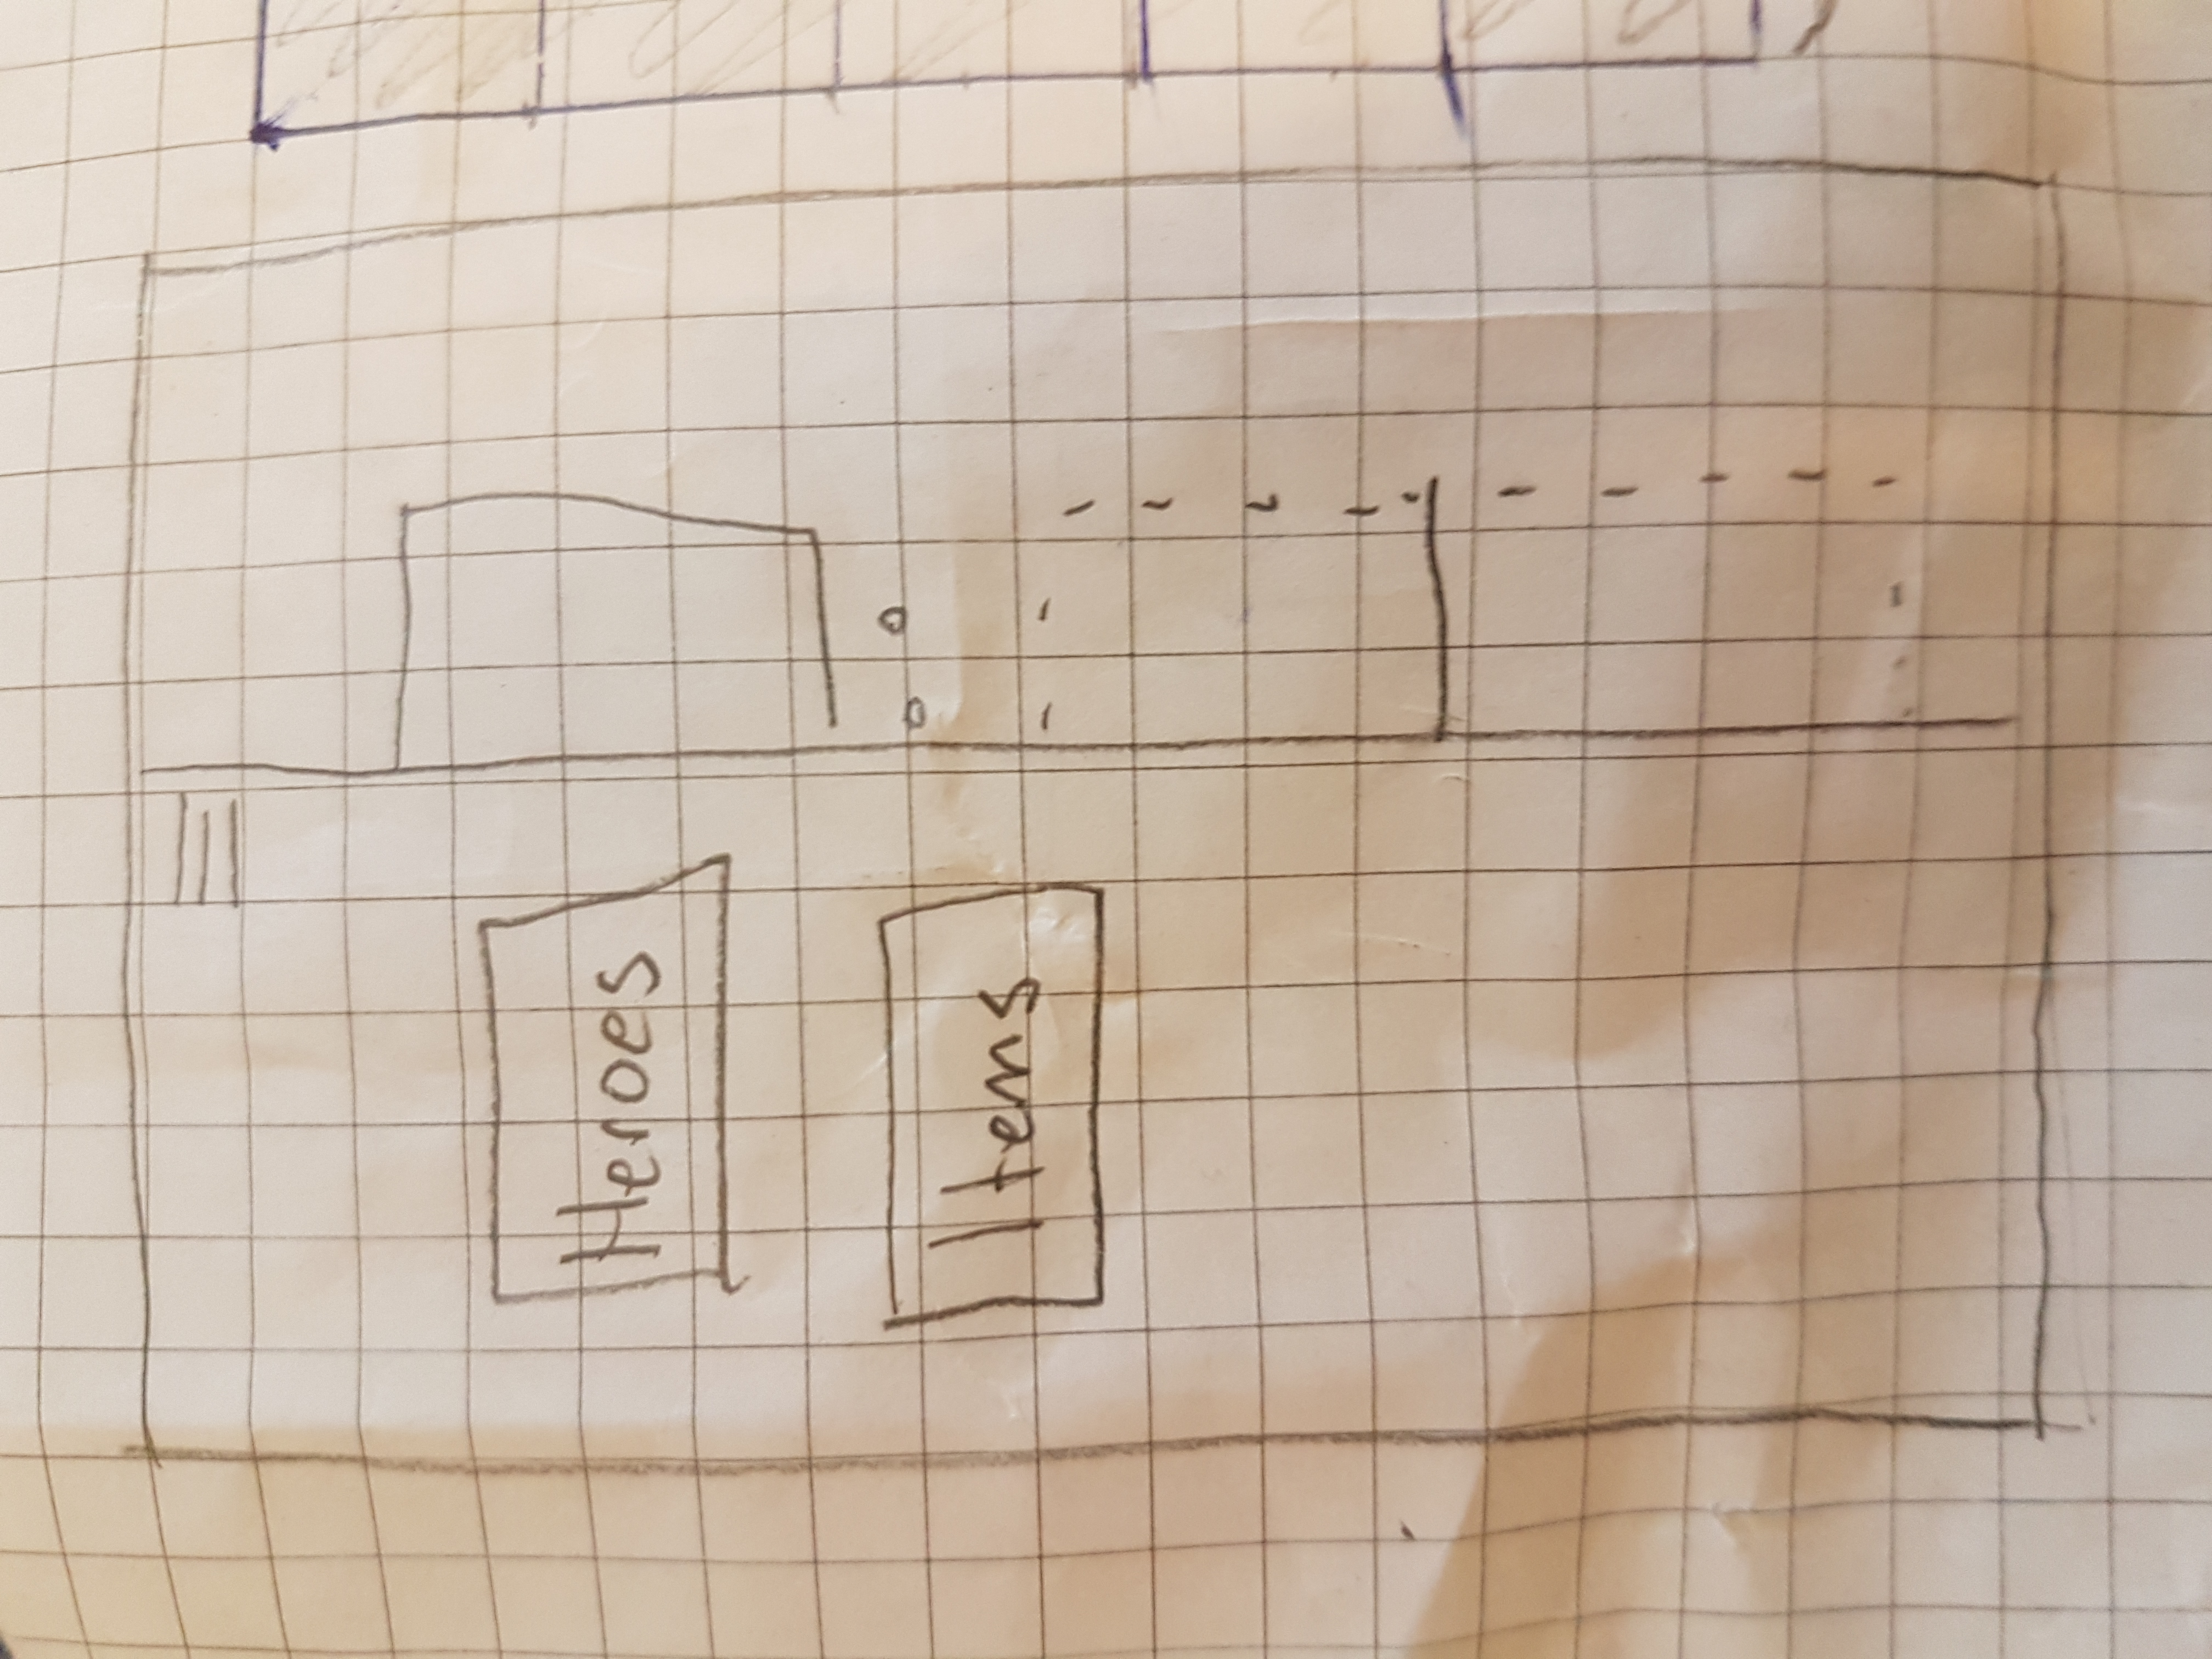 Heroes
Items